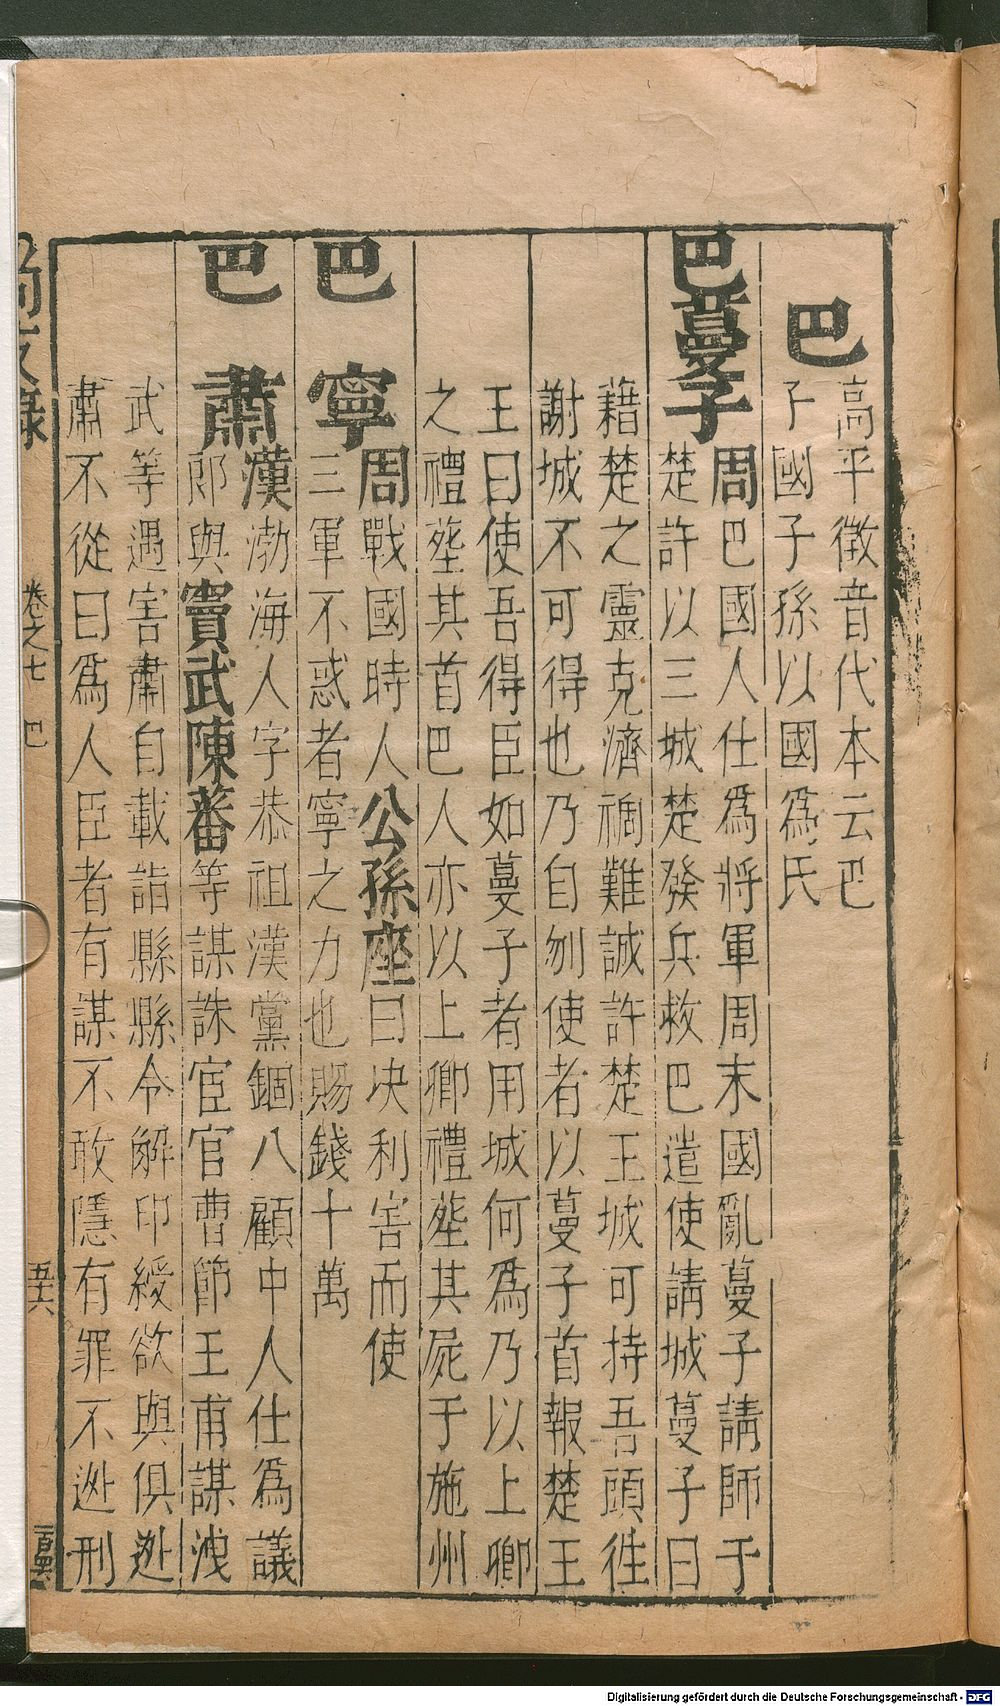 巴
高平徵音代本云巴
子國子孫以國爲氏
巴蔓子
周巴國人仕爲將軍周末國亂蔓子請師于
楚許以三城楚發兵救巴遣使請城蔓子曰
藉楚之靈克濟禍難誠許楚王城可持吾頭徃
謝城不可得也乃自刎使者以蔓子首報楚王
王曰使吾得臣如蔓子者用城何爲乃以上卿
之禮塟其首巴人亦以上卿禮塟其屍于施州
巴寧
周戰國時人公孫座曰决利害而使
三軍不惑者寧之力也賜錢十萬
巴肅
漢渤海人字恭祖漢黨錮八顧中人仕爲議
郎與竇武陳蕃等謀誅宦官曹節王甫謀洩
武等遇害肅自載詣縣縣令解印綬欲與俱迯
肅不從曰爲人臣者有謀不敢隱有罪不迯刑
卷之七 巴
五十六
Digitalisierung gefördert durch die Deutsche Forschungsgemeinschaft - DFG